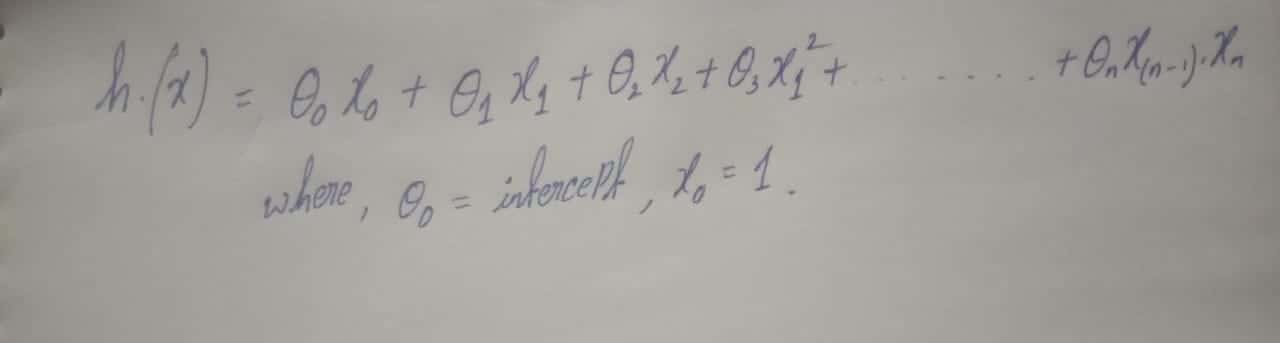 h.(x) = θ₀ x₀ + θ₁ x₁ + θ₂ x₂ + θ₃ x₁² + . . . . . . . . + θₙ x₍ₙ₋₁₎ . xₙ
where, θ₀ = intercept, x₀ = 1 .